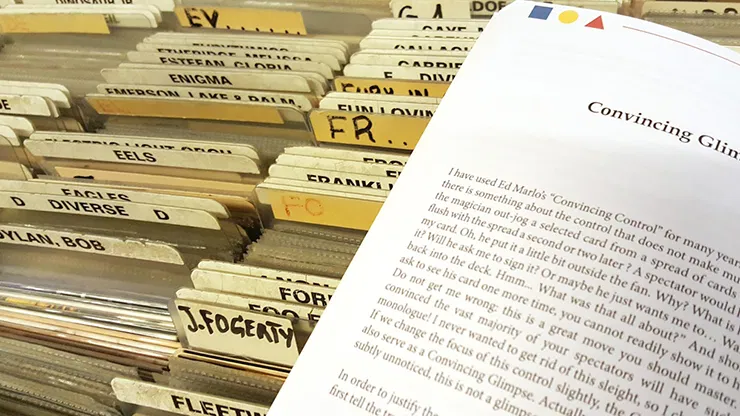 DINOSAUR JR
EV...
EURYTHMICS
ETHERIDGE, MELISSA
ESTEFAN, GLORIA
ENIGMA
EMERSON, LAKE & PALM
ELECTRIC LIGHT ORCH
EELS
EAGLES
D DIVERSE D
DYLAN, BOB
GA
GAYE
GALLAGH
GABRIE
G DIVE
FUN LOVIN
FR...
FRANKLI
FO
FOR
FOO F
J.FOGERTY
FLEETW
Convincing Glim
I have used Ed Marlo's "Convincing Control" for many year
there is something about the control that does not make mu
the magician out-jog a selected card from a spread of cards
flush with the spread a second or two later? A spectator would
my card. Oh, he put it a little bit outside the fan. Why? What is
it? Will he ask me to sign it? Or maybe he just wants me to… Wa
back into the deck. Hmm… What was that all about?" And she
ask to see his card one more time, you cannot readily show it to h
Do not get me wrong: this is a great move you should master.
convinced the vast majority of your spectators will have such
monologue! I never wanted to get rid of this sleight, so
If we change the focus of this control slightly, the C
also serve as a Convincing Glimpse. Actually
subtly unnoticed, this is not a glimps
In order to justify the
first tell the tr